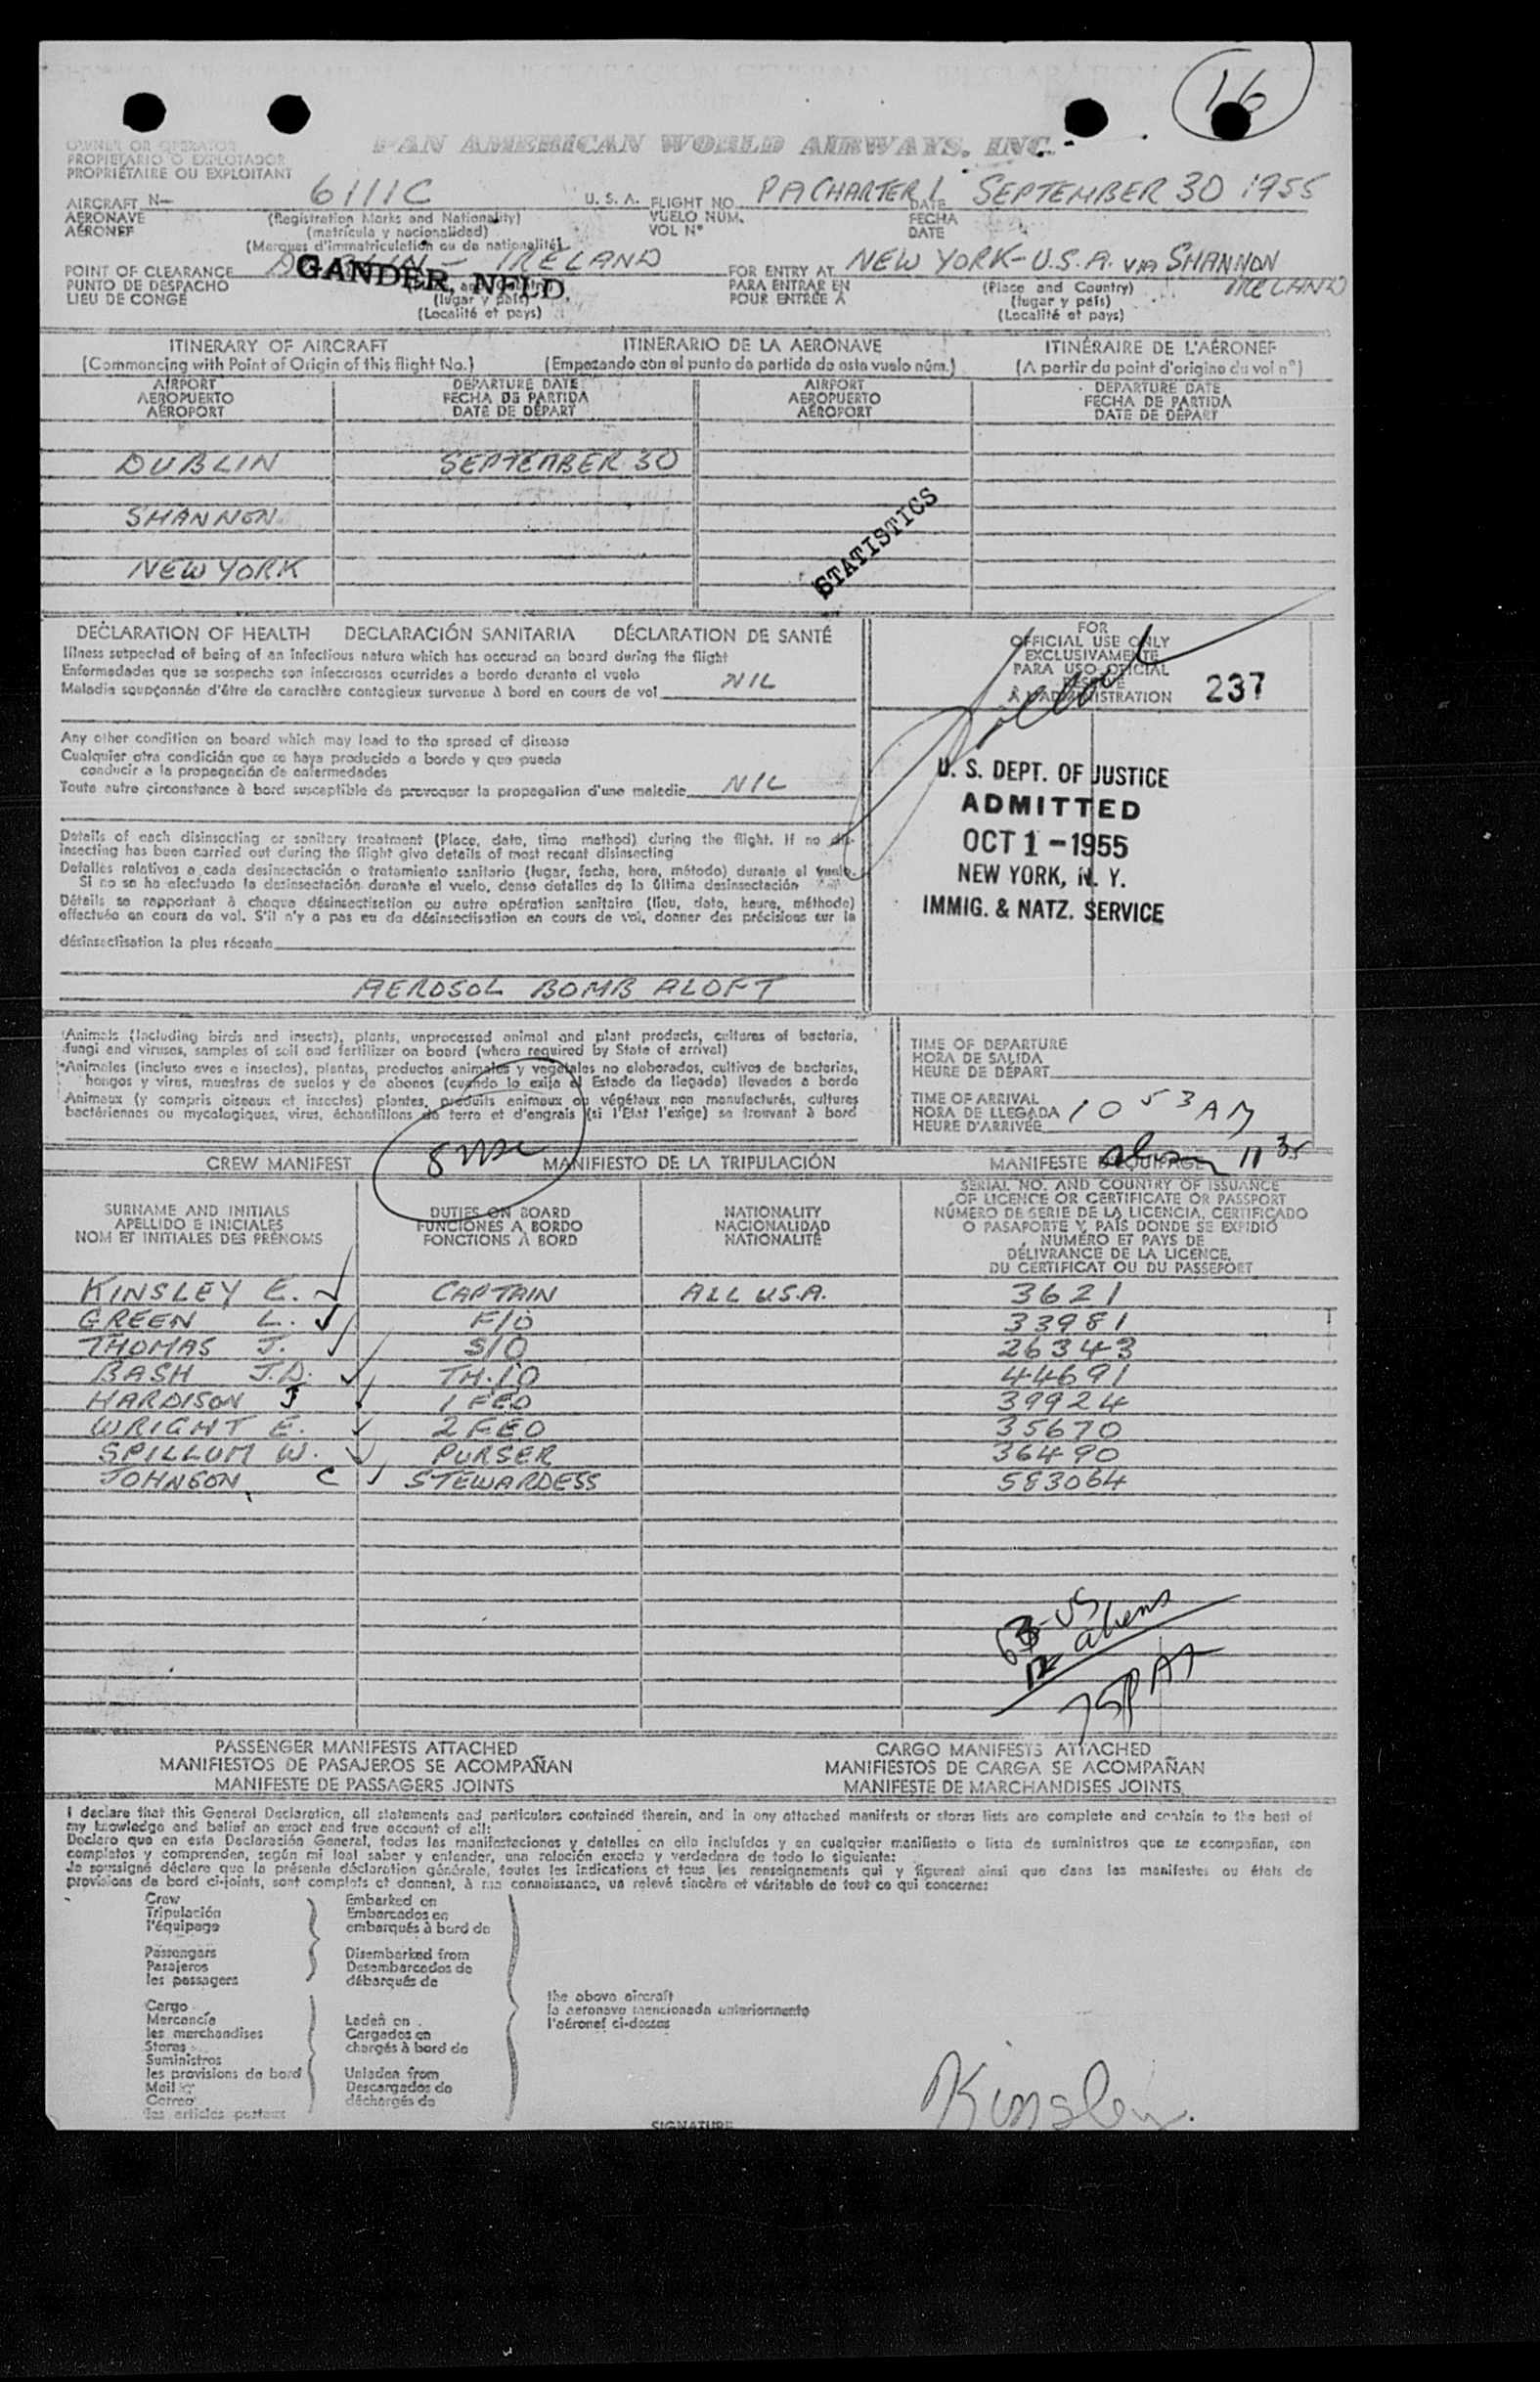 16
OWNER OR OPERATOR
PROPIETARIO O EXPLOTADOR
PROPRIÉTAIRE OU EXPLOITANT
PAN AMERICAN WORLD AIRWAYS, INC.
AIRCRAFT N— 6111C U. S. A. FLIGHT NO. PA CHARTER 1 DATE SEPTEMBER 30 1955
AERONAVE (Registration Marks and Nationality) VUELO NUM. FECHA
AÉRONEF (matrícula y nacionalidad) VOL Nº DATE
(Marques d'immatriculation ou de nationalité)
POINT OF CLEARANCE DUBLIN - IRELAND FOR ENTRY AT NEW YORK - U.S.A. VIA SHANNON
IRELAND
GANDER, NFLD.
PUNTO DE DESPACHO (Place and Country) PARA ENTRAR EN (Place and Country)
LIEU DE CONGÉ (lugar y país) POUR ENTRÉE A (lugar y país)
(Localité et pays) (Localité et pays)
ITINERARY OF AIRCRAFT ITINERARIO DE LA AERONAVE ITINÉRAIRE DE L'AÉRONEF
(Commencing with Point of Origin of this flight No.) (Empezando con el punto de partida de esta vuelo núm.) (A partir du point d'origine du vol nº)
AIRPORT DEPARTURE DATE AIRPORT DEPARTURE DATE
AEROPUERTO FECHA DE PARTIDA AEROPUERTO FECHA DE PARTIDA
AÉROPORT DATE DE DÉPART AÉROPORT DATE DE DÉPART
DUBLIN SEPTEMBER 30
SHANNON
NEW YORK
STATISTICS
DECLARATION OF HEALTH DECLARACIÓN SANITARIA DÉCLARATION DE SANTÉ
Illness suspected of being of an infectious nature which has occured on board during the flight
Enfermedades que se sospecha son infecciosas ocurridas a bordo durante el vuelo
Maladie soupçonnée d'être de caractère contagieux survenue à bord en cours de vol NIL
Any other condition on board which may lead to the spread of disease
Cualquier otra condición que se haya producido a bordo y que pueda
conducir a la propagación de enfermedades
Toute autre circonstance à bord susceptible de provoquer la propagation d'une maladie NIL
Details of each disinsecting or sanitary treatment (Place, date, time method) during the flight. If no dis-
insecting has been carried out during the flight give details of most recent disinsecting
Detalles relativos a cada desinsectación o tratamiento sanitario (lugar, fecha, hora, método) durante el vuelo
Si no se ha efectuado la desinsectación durante el vuelo, dense detalles de la última desinsectación
Détails se rapportant à chaque désinsectisation ou autre opération sanitaire (lieu, date, heure, méthode)
effectuée en cours de vol. S'il n'y a pas eu de désinsectisation en cours de vol, donner des précisions sur la
désinsectisation la plus récente
AEROSOL BOMB ALOFT
FOR
OFFICIAL USE ONLY
EXCLUSIVAMENTE
PARA USO OFICIAL
RÉSERVÉ
À L'ADMINISTRATION
237
U. S. DEPT. OF JUSTICE
ADMITTED
OCT 1 - 1955
NEW YORK, N. Y.
IMMIG. & NATZ. SERVICE
Animals (Including birds and insects), plants, unprocessed animal and plant products, cultures of bacteria,
fungi and viruses, samples of soil and fertilizer on board (where required by State of arrival)
Animales (incluso aves e insectos), plantas, productos animales y vegetales no elaborados, cultivos de bacterias,
hongos y virus, muestras de suelos y de abonos (cuando lo exija el Estado de llegada) llevados a bordo
Animaux (y compris oiseaux et insectes) plantes, produits animaux ou végétaux non manufacturés, cultures
bactériennes ou mycologiques, virus, échantillons de terre et d'engrais (si l'Etat l'exige) se trouvant à bord
TIME OF DEPARTURE
HORA DE SALIDA
HEURE DE DÉPART
TIME OF ARRIVAL
HORA DE LLEGADA 10 53 AM
HEURE D'ARRIVÉE
11 35
CREW MANIFEST MANIFIESTO DE LA TRIPULACIÓN MANIFESTE D'EQUIPAGE
SURNAME AND INITIALS
APELLIDO E INICIALES
NOM ET INITIALES DES PRÉNOMS
DUTIES ON BOARD
FUNCIONES A BORDO
FONCTIONS À BORD
NATIONALITY
NACIONALIDAD
NATIONALITÉ
SERIAL NO. AND COUNTRY OF ISSUANCE
OF LICENCE OR CERTIFICATE OR PASSPORT
NÚMERO DE SERIE DE LA LICENCIA, CERTIFICADO
O PASAPORTE Y PAÍS DONDE SE EXPIDIÓ
NUMÉRO ET PAYS DE
DÉLIVRANCE DE LA LICENCE,
DU CERTIFICAT OU DU PASSEPORT
KINSLEY E. CAPTAIN ALL U.S.A. 3621
GREEN L. F/O 33981
THOMAS J. S/O 26343
BASH J.D. TH.10 44691
HARDISON J 1 FEO 39924
WRIGHT E. 2 FEO 35670
SPILLUM W. PURSER 36490
JOHNSON C STEWARDESS 583064
63-US
12 aliens
75 PAX
PASSENGER MANIFESTS ATTACHED
MANIFIESTOS DE PASAJEROS SE ACOMPAÑAN
MANIFESTE DE PASSAGERS JOINTS
CARGO MANIFESTS ATTACHED
MANIFIESTOS DE CARGA SE ACOMPAÑAN
MANIFESTE DE MARCHANDISES JOINTS
I declare that this General Declaration, all statements and particulars contained therein, and in any attached manifests or stores lists are complete and contain to the best of
my knowledge and belief an exact and true account of all:
Declaro que en esta Declaración General, todas las manifestaciones y detalles en ella incluídos y en cualquier manifiesto o lista de suministros que se acompañan, son
completos y comprenden, según mi leal saber y entender, una relación exacta y verdadera de todo lo siguiente:
Je soussigné déclare que la présente déclaration générale, toutes les indications et tous les renseignements qui y figurent ainsi que dans les manifestes ou états de
provisions de bord ci-joints, sont complets et donnent, à ma connaissance, un relevé sincère et véritable de tout ce qui concerne:
Crew
Tripulación
l'équipage
Passengers
Pasajeros
les passagers
Cargo
Mercancía
les marchandises
Stores
Suministros
les provisions de bord
Mail
Correo
les articles postaux
Embarked on
Embarcados en
embarqués à bord de
Disembarked from
Desembarcados de
débarqués de
Laden on
Cargados en
chargés à bord de
Unladen from
Descargados de
déchargés de
the above aircraft
la aeronave mencionada anteriormente
l'aéronef ci-dessus
SIGNATURE Kinsley